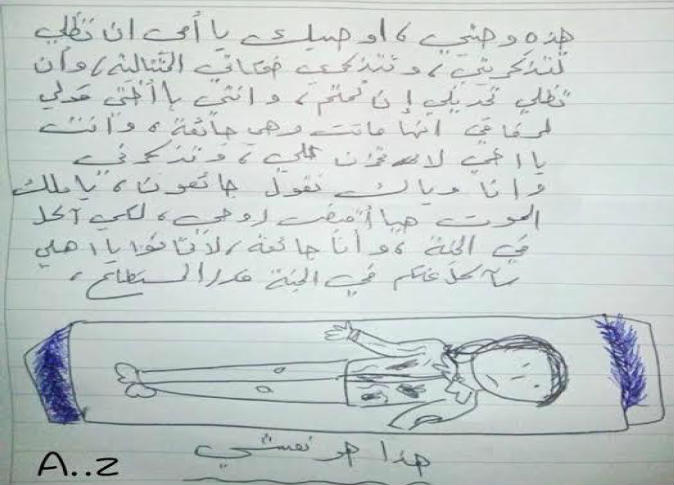 هذه وصيتي، اوصيك يا أمي ان تظلي
تتذكريني، وتتذكري ضحكاتي المتتالية، وأن
تظلي تحديني إن نمتم، وانتي يا أختي قولي
لرفاقي انها ماتت وهي جائعة، وأنت
يا اخي لا تحزن علي، وتذكرني
وانا وياك نقول جائعون، يا ملك
الموت هيا أقبضت روحي، لكي آكل
في الجنة، وأنا جائعة، لا تخافوا يا اهلي
سآكل عنكم في الجنة قدر المستطاع،
هذا هو نعشي
A..Z